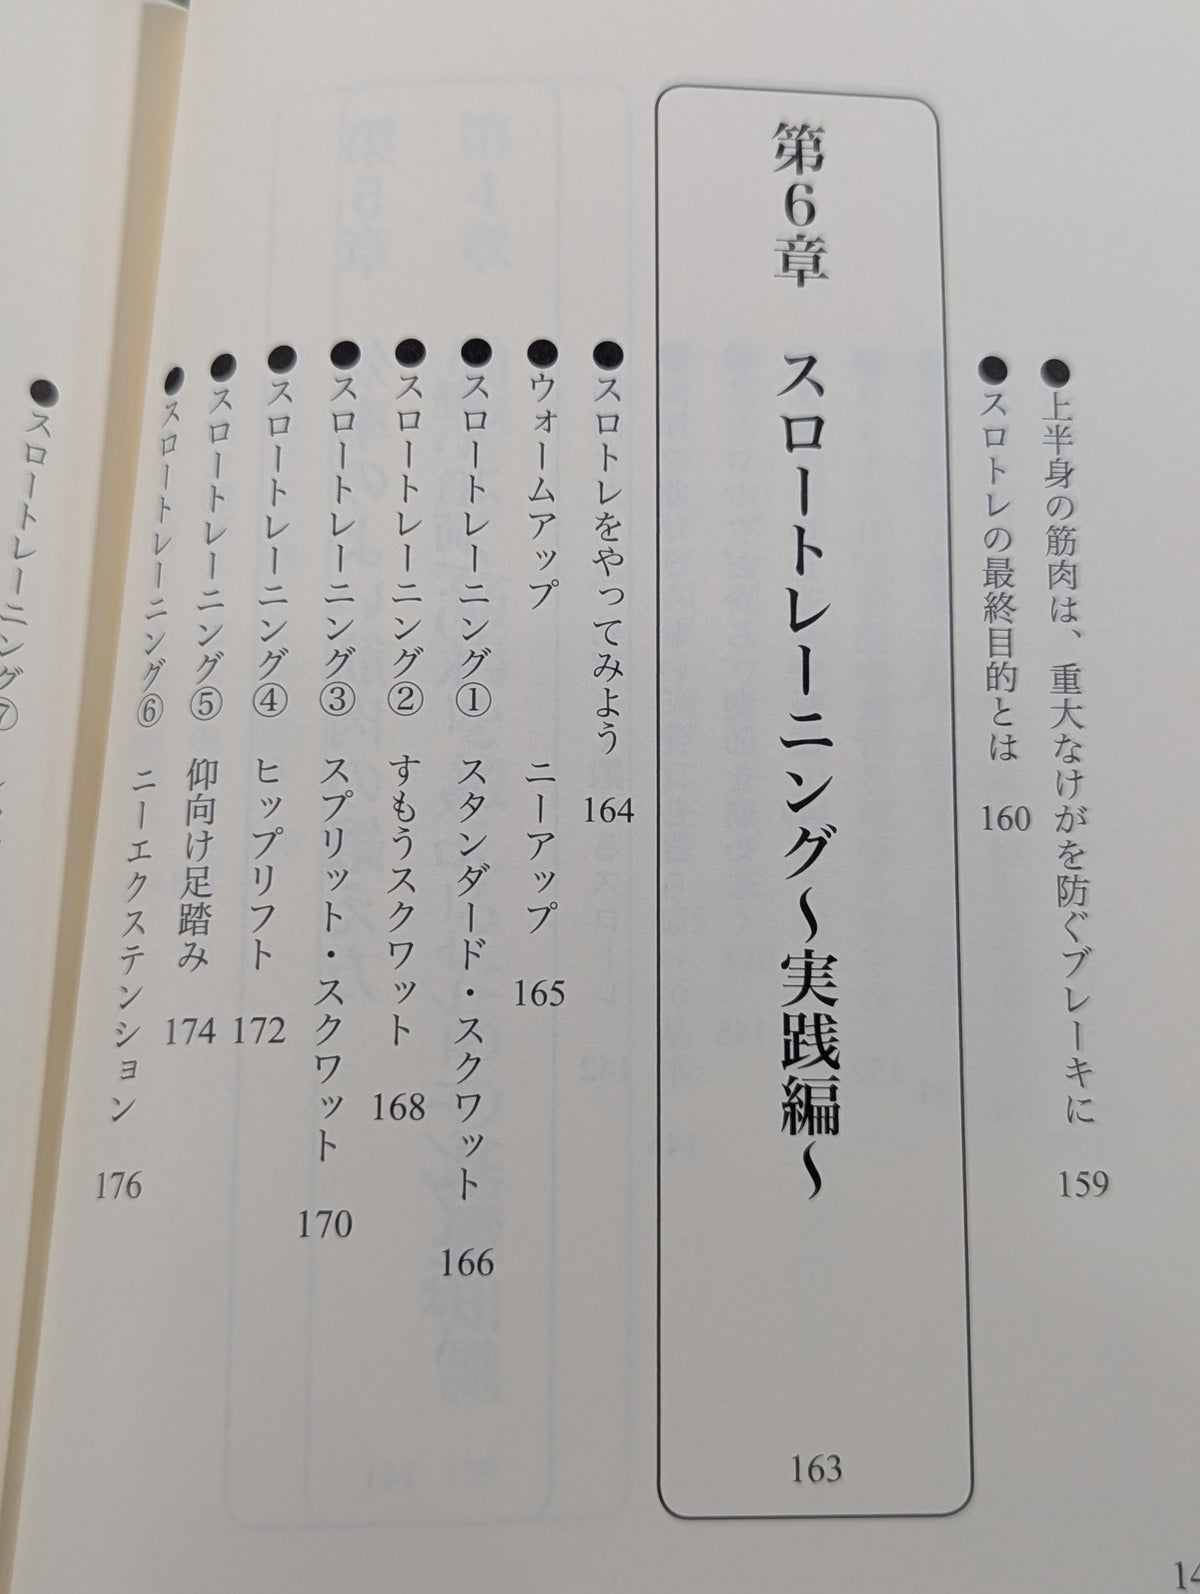 ●上半身の筋肉は、重大なけがを防ぐブレーキに 159
●スロトレの最終目的とは 160
第6章 スロートレーニング〜実践編〜 163
●スロトレをやってみよう 164
●ウォームアップ ニーアップ 165
●スロートレーニング① スタンダード・スクワット 166
●スロートレーニング② すもうスクワット 168
●スロートレーニング③ スプリット・スクワット 170
●スロートレーニング④ ヒップリフト 172
●スロートレーニング⑤ 仰向け足踏み 174
●スロートレーニング⑥ ニーエクステンション 176
●スロートレーニング⑦
14